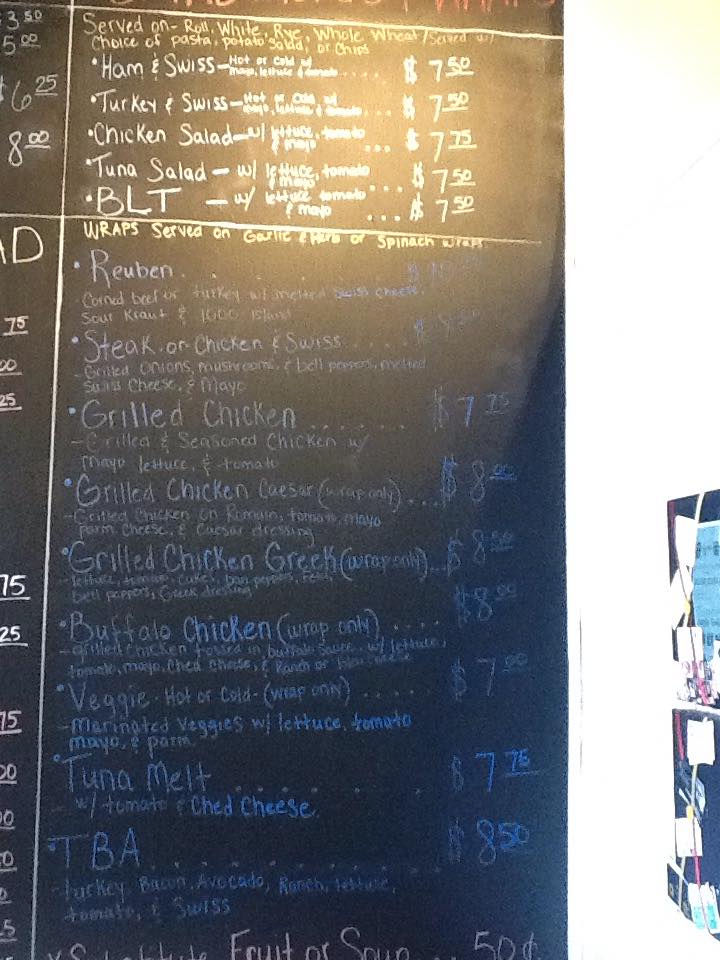 3.50
Served on- Roll, White, Rye, Whole Wheat/Served w/
5.00
Choice of pasta, potato salad, or Chips
$6.25
•Ham & Swiss-Hot or Cold w/ mayo, lettuce & tomato .... $ 7.50
•Turkey & Swiss-Hot or Cold, w/ mayo, lettuce & tomato ... $ 7.50
8.00
•Chicken Salad-w/ lettuce, tomato & mayo ... $ 7.75
•Tuna Salad - w/ lettuce, tomato & mayo ... $ 7.50
•BLT - w/ lettuce tomato & mayo ... $ 7.50
AD
WRAPS Served on Garlic & Herb or Spinach wraps
•Reuben
Corned beef or turkey w/ melted Swiss cheese,
Sour Kraut & 1000 Island
75
•Steak or Chicken & Swiss ....
00
-Grilled Onions, mushrooms, & bell peppers, melted
25
Swiss Cheese, & Mayo
•Grilled Chicken ...... $ 7.75
-Grilled & Seasoned Chicken w/
mayo lettuce, & tomato
•Grilled Chicken Caesar (wrap only) ... $ 8.00
-Grilled Chicken on Romain, tomato, mayo
parm cheese, & Caesar dressing
•Grilled Chicken Greek (wrap only)... $ 8.50
75
bell peppers, Greek dressing
$8.00
25
•Buffalo Chicken (wrap only) ....
-grilled Chicken tossed in buffalo sauce, w/ lettuce,
tomato, mayo, Ched Cheese, & Ranch or
•Veggie-Hot or Cold-(wrap only) .... $ 7.00
75
-Marinated Veggies w/ lettuce, tomato
mayo, & parm
00
•Tuna Melt ...... $ 7.75
-w/ tomato & Ched Cheese.
•TBA ........ $ 8.50
-turkey, Bacon, Avocado, Ranch, lettuce,
tomato, & Swiss
Substitute Fruit or Soup .. 50¢